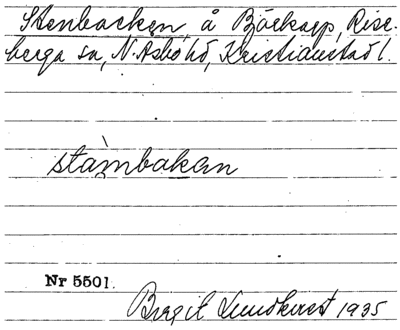 Stenbacken, å Björkarp, Rise-
berga sn, N. Åsbo hd, Kristianstad l.
stàmbakan
Nr 5501.
Birgit Lundkvist 1935